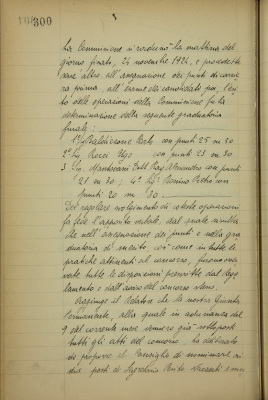 300
La Commissione si radunò la mattina del
giorno fissato, 24 novembre 1924, e procedette
oltre all'assegnazione dei punti di carrie
ra prima, all'esame dei candidati poi, l'esi
to delle operazioni della Commissione fu la
determinazione della seguente graduatoria
finale:
1° Sig. Baldissone con punti 25 su 30
2° Sig. Rocci Ugo con punti 23 su 30
3 Sig. Mantovani Dott. Rag. Alessandro con punti
21 su 30; 4° Sig. Bonino Pietro con
punti 20 su 30
Del regolare svolgimento di codeste operazioni
fa fede l'apposito verbale, dal quale risulta
che nell'assegnazione dei punti e nella gra
duatoria di merito, così come in tutte le
pratiche attinenti al concorso, furono osser
vate tutte le disposizioni prescritte dal Rego
lamento e dall'avviso del concorso stesso.
Aggiunge il Relatore che la nostra Giunta
Permanente, alla quale in adunanza del
9 del corrente mese vennero già sottoposti
tutti gli atti del concorso, ha deliberato
di proporre al Consiglio di nominare ai
due posti di Segretario vacanti